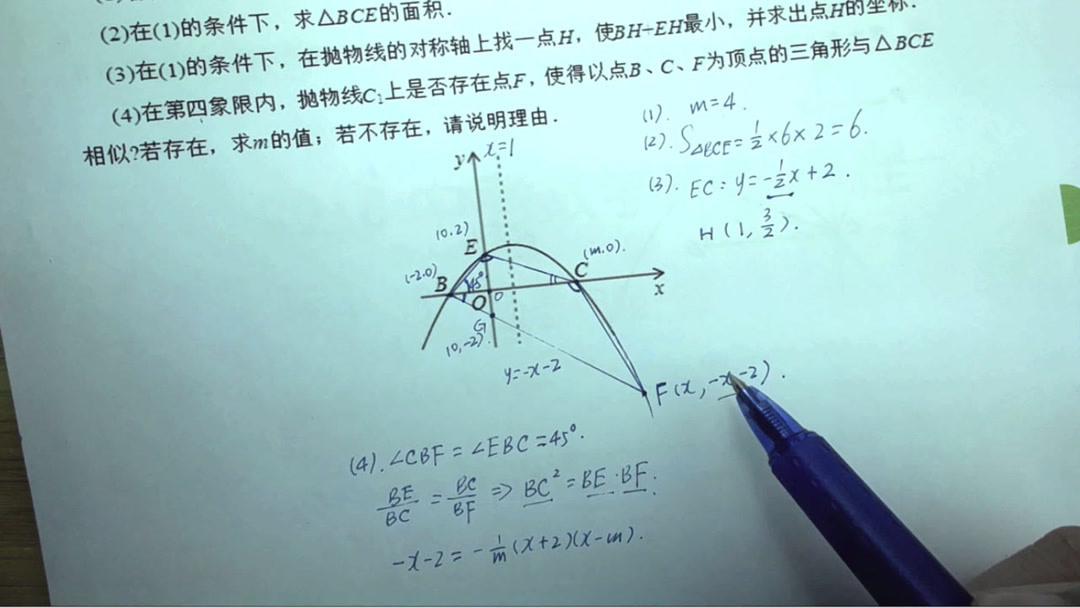 (2)在(1)的条件下，求△BCE的面积．
(3)在(1)的条件下，在抛物线的对称轴上找一点H，使BH+EH最小，并求出点H的坐标．
(4)在第四象限内，抛物线C₁上是否存在点F，使得以点B、C、F为顶点的三角形与△BCE
相似?若存在，求m的值；若不存在，请说明理由．
(1). m=4.
(2). S△BCE=1/2×6×2=6.
(3). EC: y=-1/2x+2.
H(1, 3/2).
y x=1
(0,2)
E
(m,0).
(-2,0)
B
45°
C
O
x
G
(0,-2)
y=-x-2
F(x,-x-2).
(4). ∠CBF=∠EBC=45°.
BE/BC=BC/BF ⇒ BC²=BE·BF.
-x-2=-1/m(x+2)(x-m).